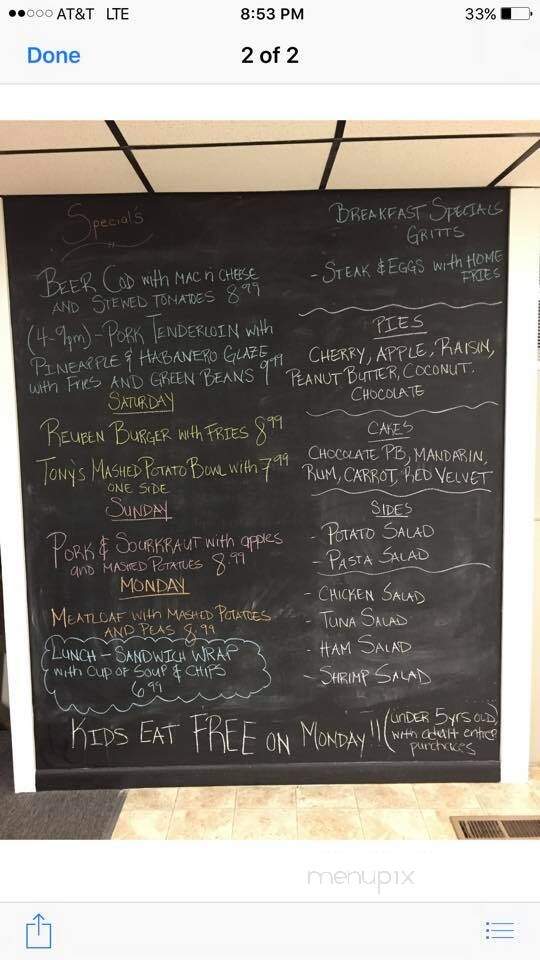 AT&T LTE
8:53 PM
33%
Done
2 of 2
Specials
BEER COD with MAC n CHEESE
AND STEWED TOMATOES 8.99
(4-9pm) - PORK TENDERLOIN with
PINEAPPLE & HABANERO GLAZE
with FRIES AND GREEN BEANS 9.99
SATURDAY
REUBEN BURGER with FRIES 8.99
TONY'S MASHED POTATO BOWL with 7.99
ONE SIDE
SUNDAY
PORK & SOURKRAUT with apples
and MASHED POTATOES 8.99
MONDAY
MEATLOAF with MASHED POTATOES
AND PEAS 8.99
LUNCH - SANDWICH WRAP
with CUP OF SOUP & CHIPS
6.99
BREAKFAST SPECIALS
GRITTS
- STEAK & EGGS with HOME
FRIES
PIES
CHERRY, APPLE, RAISIN,
PEANUT BUTTER, COCONUT.
CHOCOLATE
CAKES
CHOCOLATE PB, MANDARIN,
RUM, CARROT, RED VELVET
SIDES
- POTATO SALAD
- PASTA SALAD
- CHICKEN SALAD
- TUNA SALAD
- HAM SALAD
- SHRIMP SALAD
KIDS EAT FREE ON MONDAY!! (UNDER 5yrs OLD
with adult entree
purchases
menupix